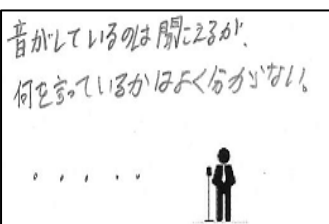 音がしているのは聞こえるが、
何を言っているかはよく分からない。
・・・・・